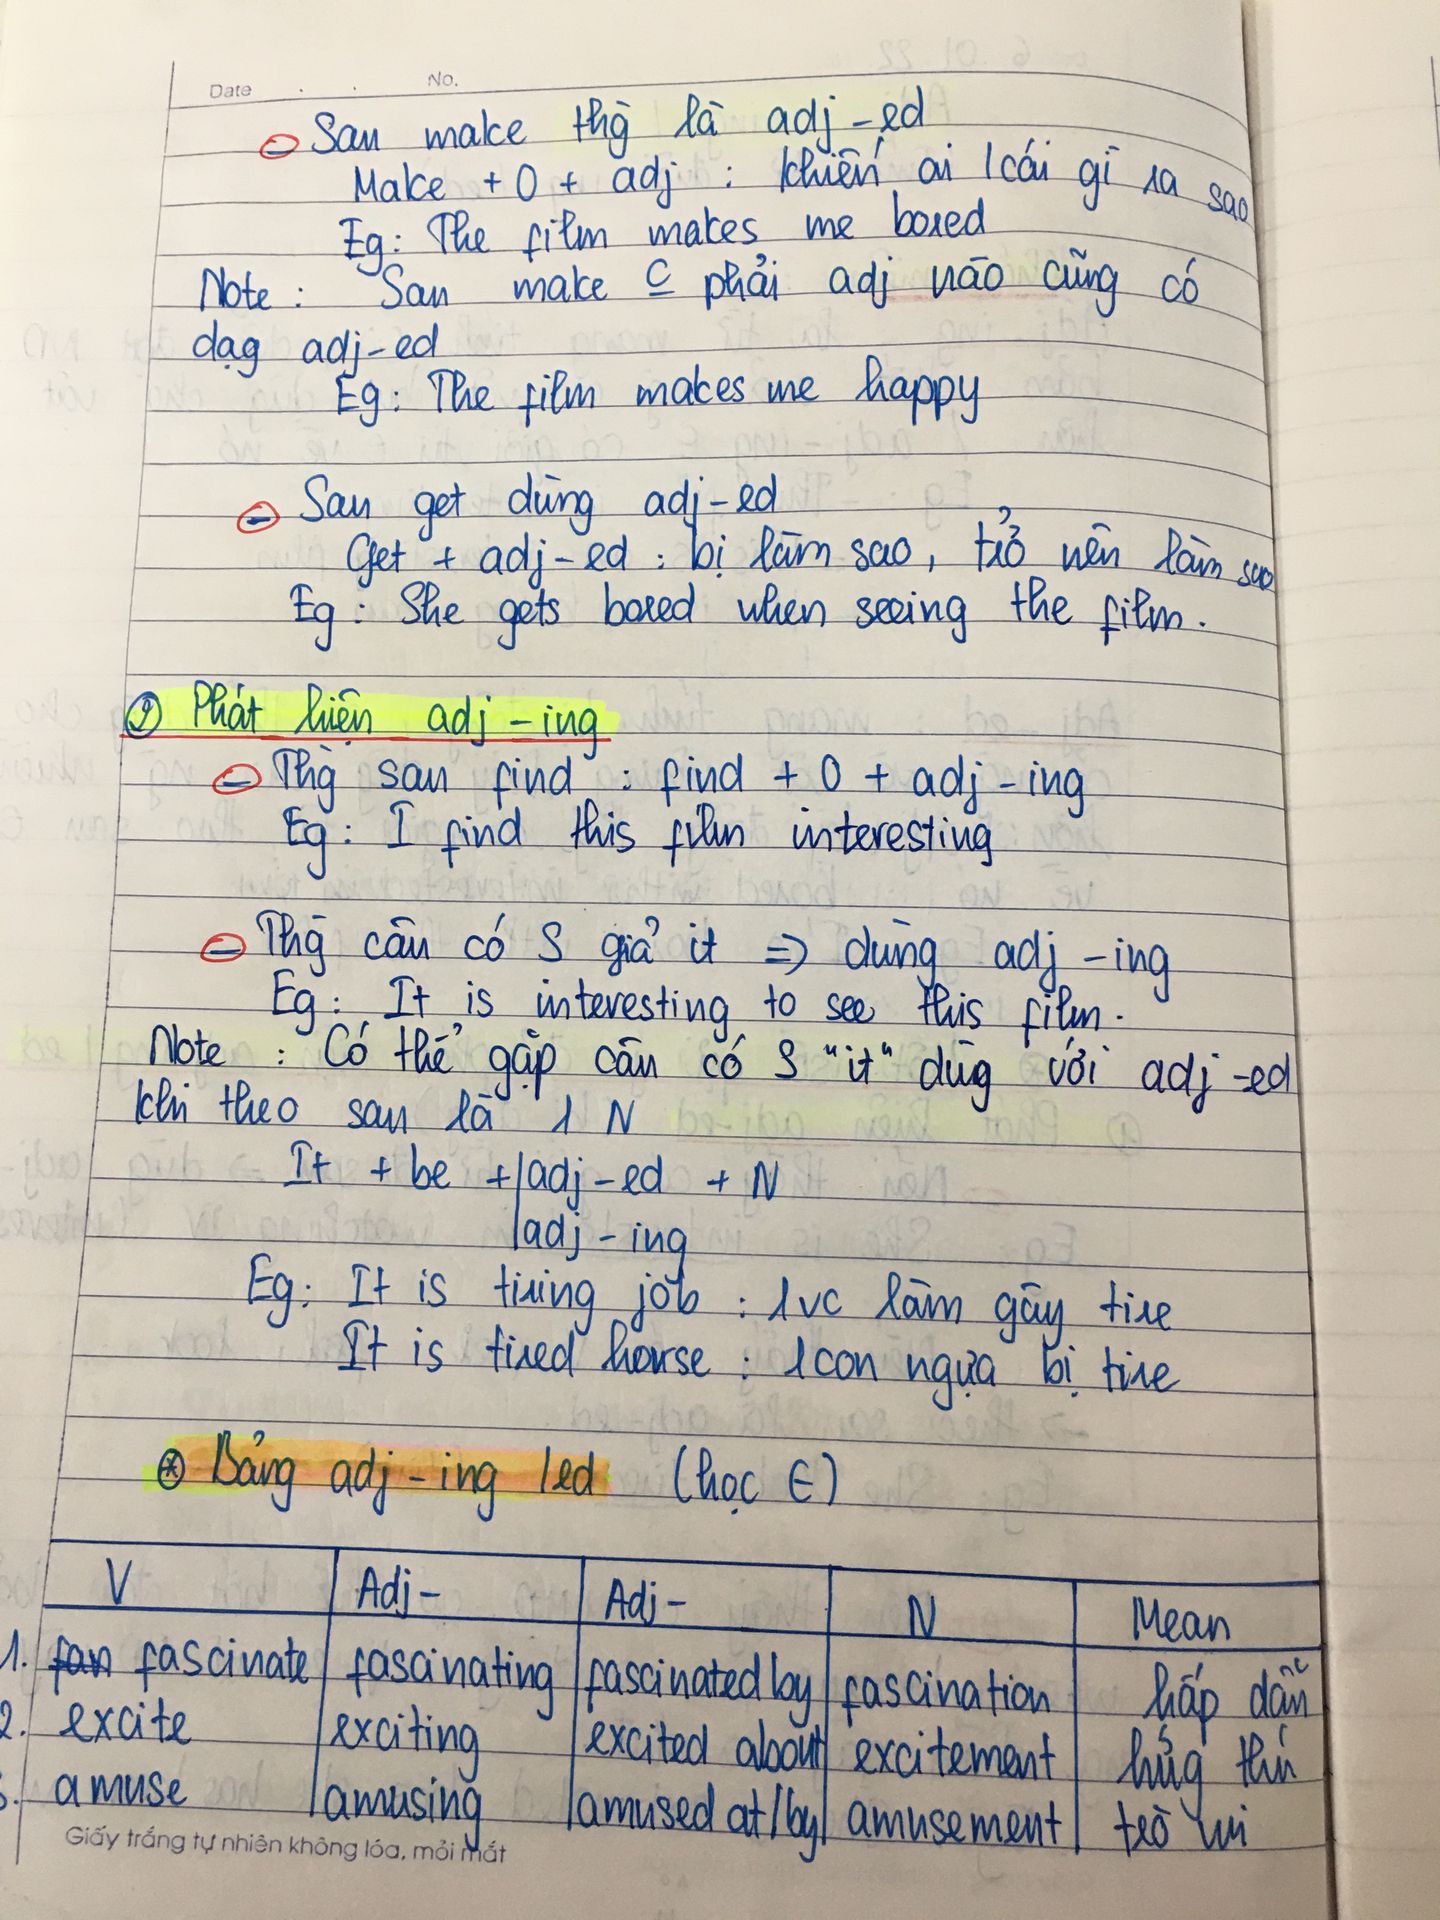 Date . . No.
Sau make thg là adj-ed
Make + O + adj : khiến ai / cái gì ra sao
Eg: The film makes me bored
Note : Sau make C phải adj nào cũng có
dạg adj-ed
Eg: The film makes me happy
Sau get dùng adj-ed
Get + adj-ed : bị làm sao, trở nên làm sao
Eg : She gets bored when seeing the film.
② Phát hiện adj-ing
Thg sau find : find + O + adj-ing
Eg : I find this film interesting
Thg câu có S giả it => dùng adj-ing
Eg : It is interesting to see this film.
Note : Có thể gặp câu có S "it" dùg với adj-ed
khi theo sau là 1 N
It + be + | adj-ed + N
| adj-ing
Eg: It is tiring job : 1 vc làm gây tire
It is tired horse : 1 con ngựa bị tire
Bảng adj-ing / ed (học ∈)
V Adj- Adj- N Mean
1. fan fascinate fascinating fascinated by fascination hấp dẫn
2. excite exciting excited about excitement hứg thú
3. amuse amusing amused at/by amusement trò vui
Giấy trắng tự nhiên không lóa, mỏi mắt